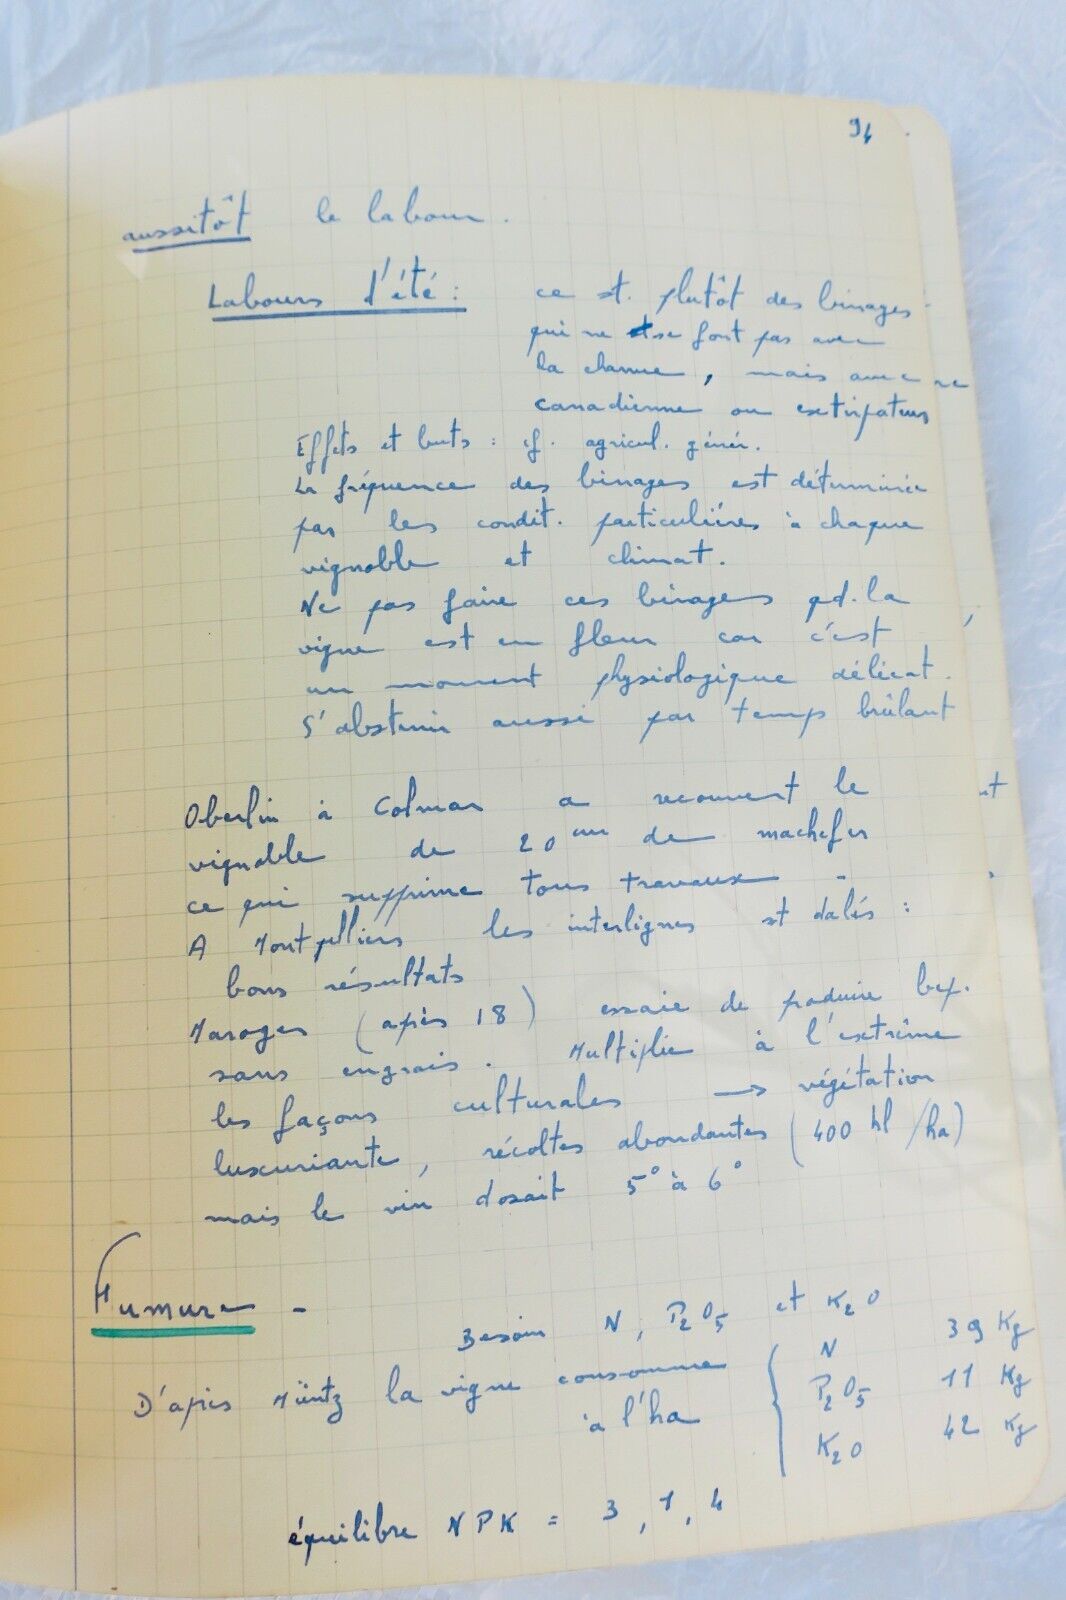 94
aussitôt le labour.
Labours d'été : ce st. plutôt des binages
qui ne se font pas avec
la charrue, mais avec
canadienne ou extirpateurs
Effets et buts : cf. agricul. génér.
La fréquence des binages est déterminée
par les condit. particulières à chaque
vignoble et climat.
Ne pas faire ces binages qd. la
vigne est en fleur car c'est
un moment physiologique délicat.
S'abstenir aussi par temps brûlant
Oberlin à Colmar a recouvert le
vignoble de 20 cm de machefer
ce qui supprime tous travaux -
A Montpelliers les interlignes st dalés :
bons résultats
Maroger (après 18) essaie de produire bcp.
sans engrais. Multiplie à l'extrême
les façons culturales → végétation
luxuriante, récoltes abondantes (400 hl/ha)
mais le vin dosait 5° à 6°
Fumure -
Besoin N, P2O5 et K2O
D'après Müntz la vigne consomme
à l'ha
N 39 Kg
P2O5 11 Kg
K2O 42 Kg
équilibre NPK = 3, 1, 4